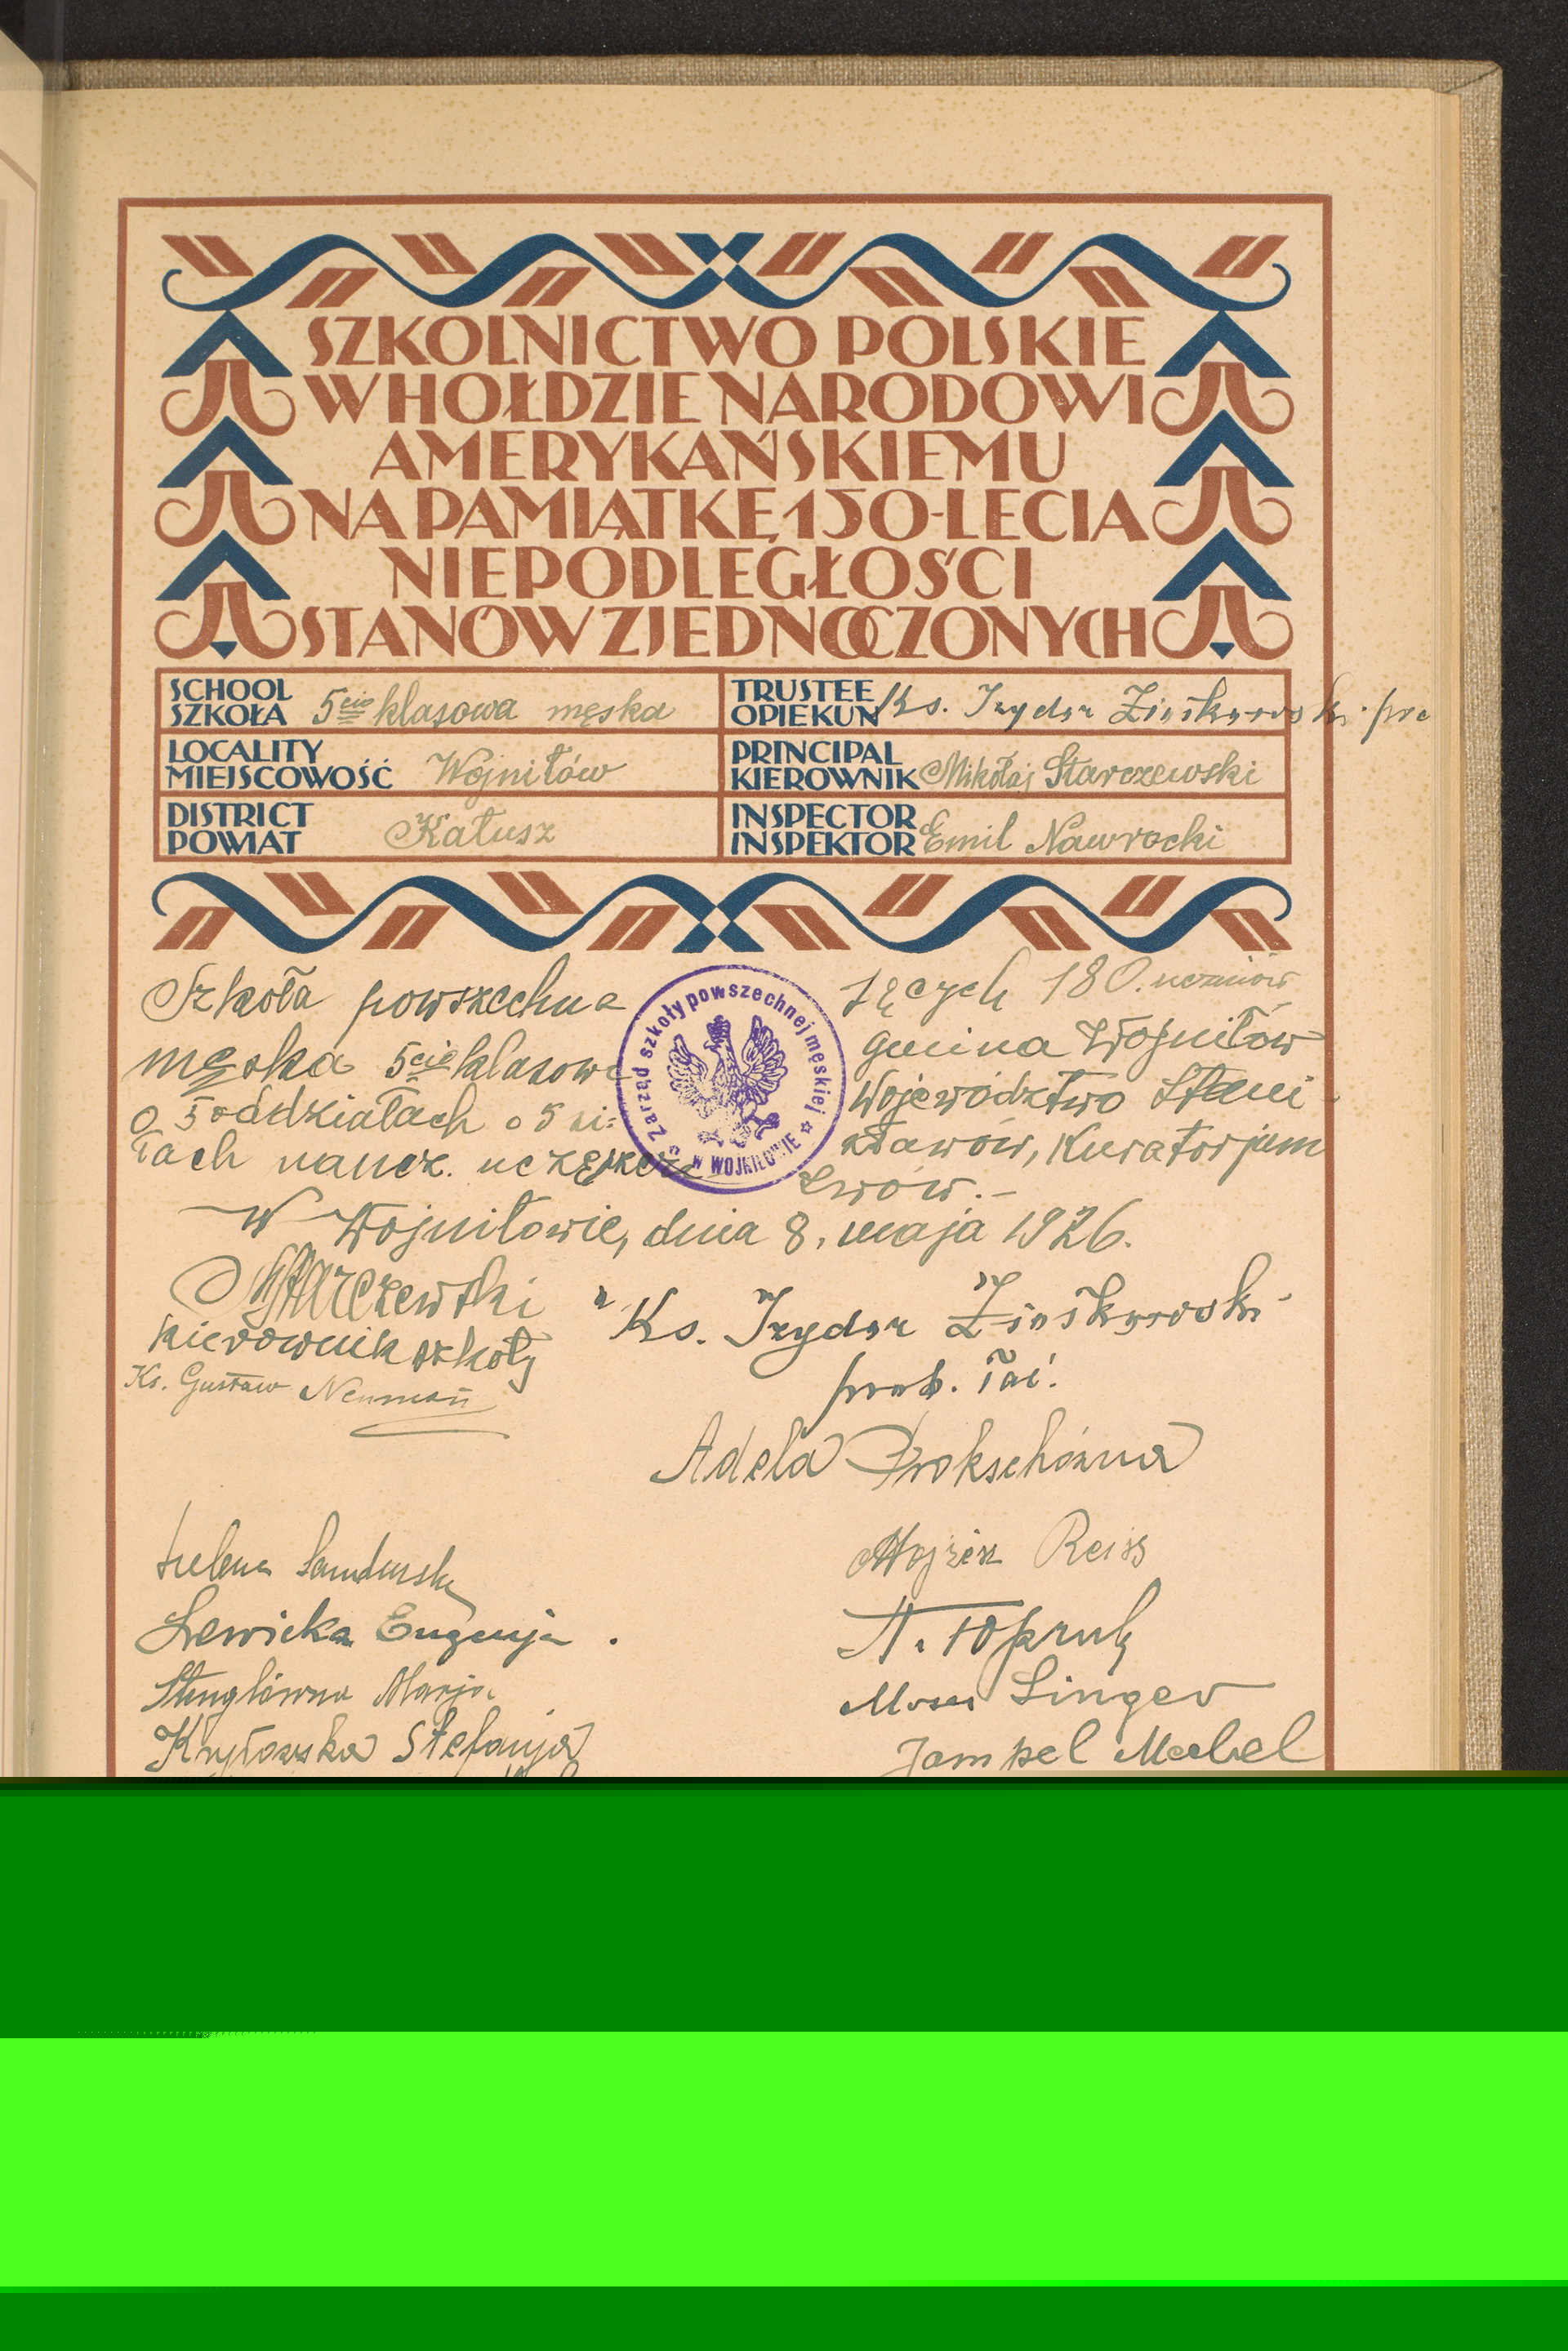 SZKOLNICTWO POLSKIE
W HOŁDZIE NARODOWI
AMERYKAŃSKIEMU
NA PAMIĄTKĘ 150-LECIA
NIEPODLEGŁOŚCI
STANÓW ZJEDNOCZONYCH
SCHOOL
SZKOŁA 5cio klasowa męska
TRUSTEE
OPIEKUN Ks. Izydor
LOCALITY
MIEJSCOWOŚĆ Wojniłów
PRINCIPAL
KIEROWNIK Mikołaj Starczewski
DISTRICT
POWIAT Kałusz
INSPECTOR
INSPEKTOR Emil Nawrocki
Szkoła powszechna
męska 5cio klasowa
o 5 oddziałach o 5 si-
łach naucz.
Zarząd szkoły powszechnej męskiej
W WOJNIŁOWIE
180. uczniów
gmina Wojniłów
Województwo Stani-
sławów, Kuratorjum
Lwów.-
W Wojniłowie, dnia 8. maja 1926.
Starczewski
kierownik szkoły
Ks. Izydor
Ks. Gustaw Neuman
prob. łać.
Adela Prokschówna
Helena
Lewicka Eugenja.
Stenglówna Marja
Stefanja
Mojżesz Reiss
Singer
Jampel